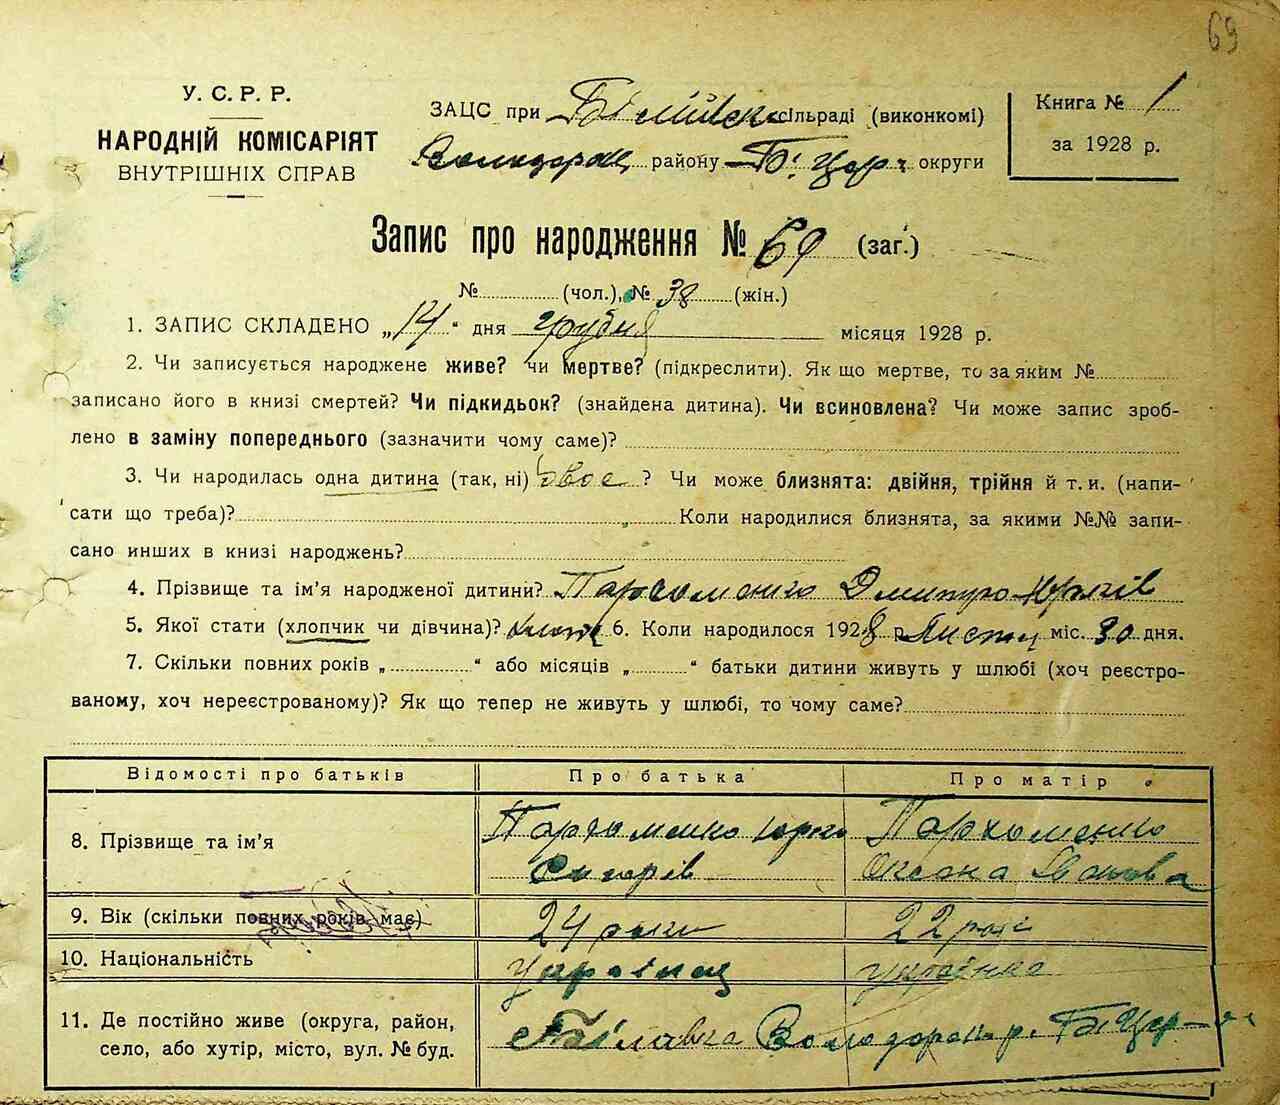 69
У. С. Р. Р.
НАРОДНІЙ КОМІСАРІЯТ
ВНУТРІШНІХ СПРАВ
ЗАЦС при сільраді (виконкомі)
Володарськ району Б. Церк округи
Книга № 1
за 1928 р.
Запис про народження № 69 (заг.)
№ (чол.), № 38 (жін.)
1. ЗАПИС СКЛАДЕНО „14" дня грудня місяця 1928 р.
2. Чи записується народжене живе? чи мертве? (підкреслити). Як що мертве, то за яким №
записано його в книзі смертей? Чи підкидьок? (знайдена дитина). Чи всиновлена? Чи може запис зроб-
лено в заміну попереднього (зазначити чому саме)?
3. Чи народилась одна дитина (так, ні) двоє ? Чи може близнята: двійня, трійня й т. и. (напи-
сати що треба)? Коли народилися близнята, за якими №№ запи-
сано инших в книзі народжень?
4. Прізвище та ім'я народженої дитини? Пархоменко Дмитро Юрків
5. Якої стати (хлопчик чи дівчина)? 6. Коли народилося 1928 р Листп міс. 30 дня.
7. Скільки повних років „ " або місяців „ " батьки дитини живуть у шлюбі (хоч реєстро-
ваному, хоч нереєстрованому)? Як що тепер не живуть у шлюбі, то чому саме?
Відомості про батьків Про батька Про матір
8. Прізвище та ім'я Пархоменко Юрко Пархоменко
Оксана
9. Вік (скільки повних років має) 24 роки 22 роки
10. Національність Українец українка
11. Де постійно живе (округа, район,
село, або хутір, місто, вул. № буд.
Володарськ р. Б Церк